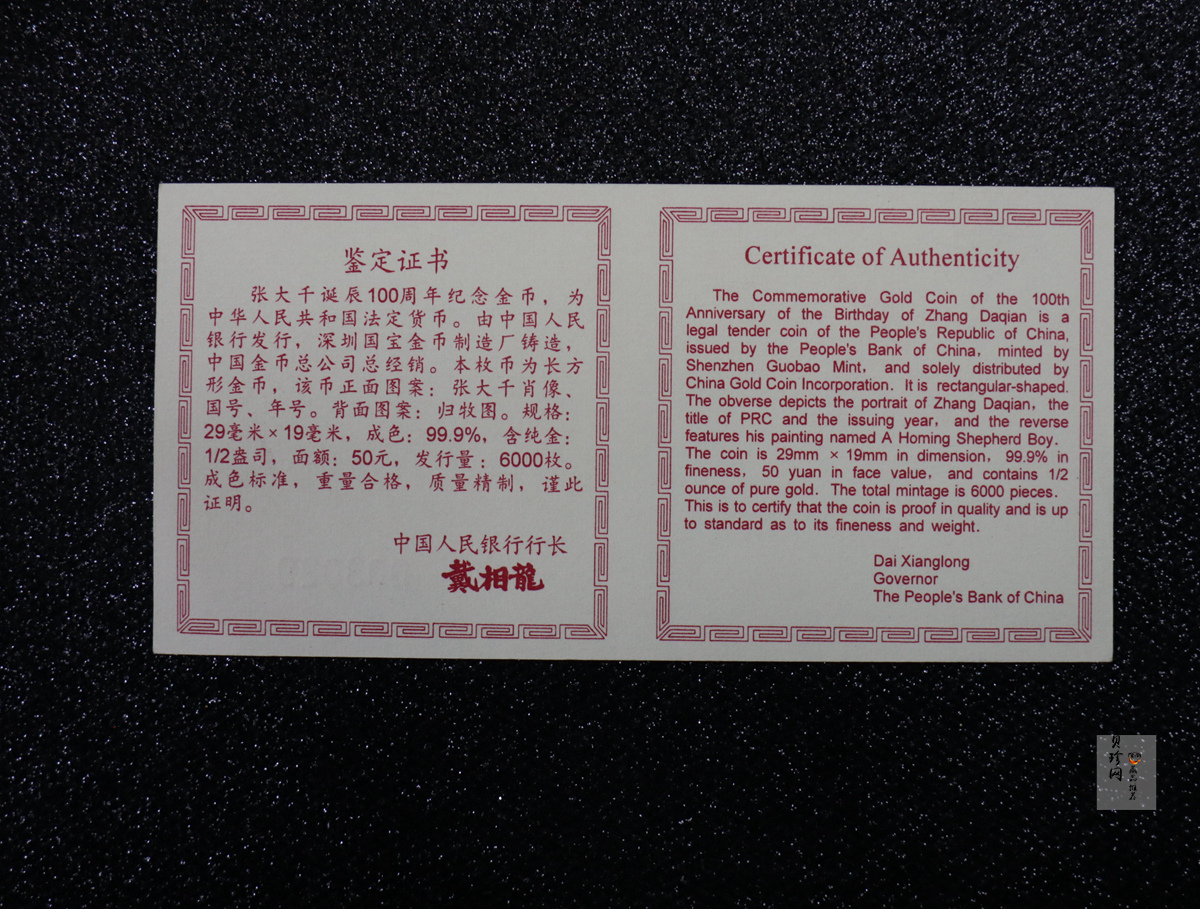 鉴定证书
张大千诞辰100周年纪念金币，为
中华人民共和国法定货币。由中国人民
银行发行，深圳国宝金币制造厂铸造，
中国金币总公司总经销。本枚币为长方
形金币，该币正面图案：张大千肖像、
国号、年号。背面图案：归牧图。规格：
29毫米×19毫米，成色：99.9%，含纯金：
1/2盎司，面额：50元，发行量：6000枚。
成色标准，重量合格，质量精制，谨此
证明。
中国人民银行行长
戴相龍
Certificate of Authenticity
The Commemorative Gold Coin of the 100th
Anniversary of the Birthday of Zhang Daqian is a
legal tender coin of the People's Republic of China,
issued by the People's Bank of China, minted by
Shenzhen Guobao Mint, and solely distributed by
China Gold Coin Incorporation. It is rectangular-shaped.
The obverse depicts the portrait of Zhang Daqian, the
title of PRC and the issuing year, and the reverse
features his painting named A Homing Shepherd Boy.
The coin is 29mm × 19mm in dimension, 99.9% in
fineness, 50 yuan in face value, and contains 1/2
ounce of pure gold. The total mintage is 6000 pieces.
This is to certify that the coin is proof in quality and is up
to standard as to its fineness and weight.
Dai Xianglong
Governor
The People's Bank of China